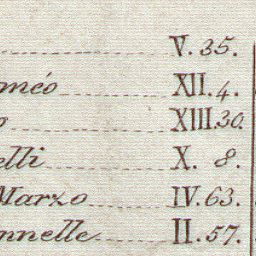 V. 35.
méo XII. 4.
o XIII. 30.
elli X. 8.
Marzo IV. 63.
nnelle II. 57.